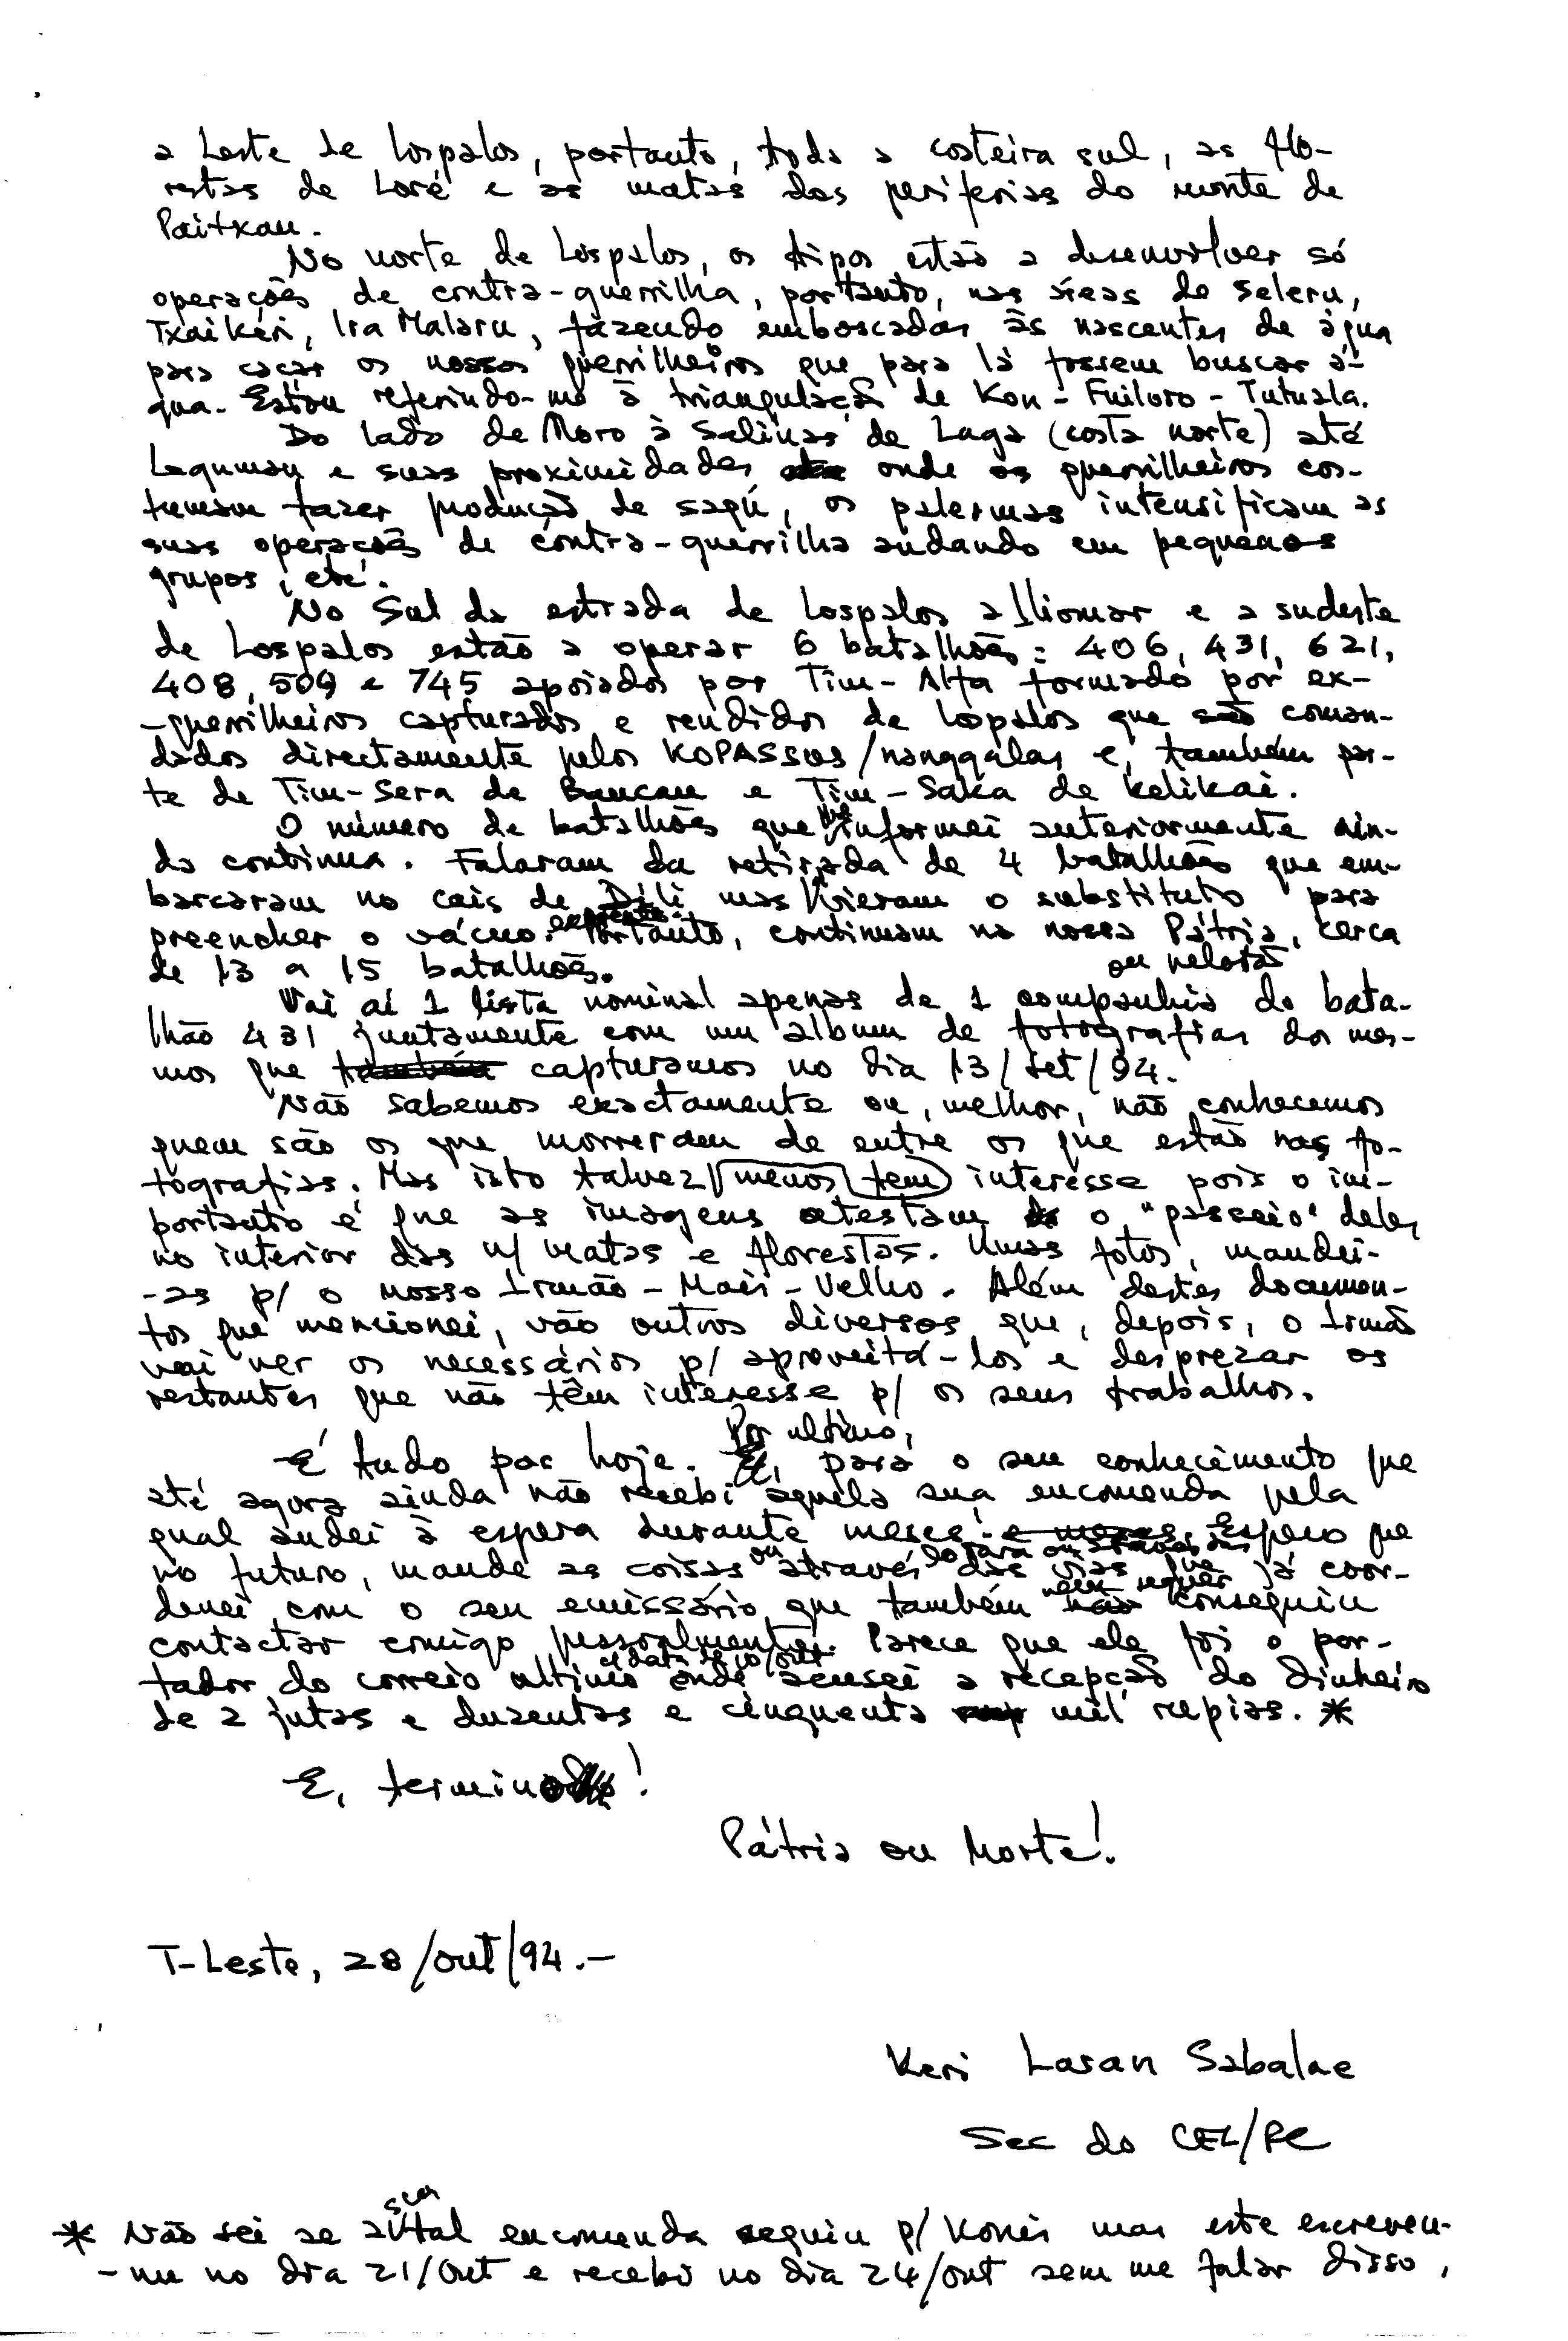 a Leste de Lospalos, portanto, toda a costeira sul, as flo-
restas de Loré e as matas das periferias do monte de
Paitxau.
No norte de Lospalos, os tipos estão a desenvolver só
operações de contra-guerrilha, portanto, nas áreas de Seleru,
Txaikéri, Ira Malaru, fazendo emboscadas às nascentes de água
para caçar os nossos guerrilheiros que para lá fossem buscar á-
gua. Estou referindo-me à triangulação de Kon - Fuiloro - Tutuala.
Do lado de Moro à Salinas de Laga (costa norte) até
Legumau e suas proximidades onde os guerrilheiros cos-
tumam fazer produção de sagú, os palermas intensificam as
suas operações de contra-guerrilha andando em pequenos
grupos, etc.
No Sul da estrada de Lospalos a Iliomar e a sudeste
de Lospalos estão a operar 6 batalhões: 406, 431, 621,
408, 509 e 745 apoiados por Tim-Alfa formado por ex-
-guerrilheiros capturados e rendidos de Lospalos que são coman-
dados directamente pelos KOPASSUS/nanggalas e, também par-
te de Tim-Sera de Baucau e Tim-Saka de Kelikai.
O número de batalhões que lhe informei anteriormente ain-
da continua. Falaram da retirada de 4 batalhões que em-
barcaram no cais de Díli mas vieram o substituto para
preencher o vácuo. Portanto, continuam na nossa Pátria, cerca
de 13 a 15 batalhões.
ou pelotão
Vai aí 1 lista nominal apenas de 1 companhia do bata-
lhão 431 juntamente com um album de fotografias dos mes-
mos que também capturamos no dia 13/Set/94.
Não sabemos exactamente ou, melhor, não conhecemos
quem são os que morreram de entre os que estão nas fo-
tografias. Mas isto talvez menos tem interesse pois o im-
portante é que as imagens atestam o "passeio" deles
no interior das n/ matas e florestas. Umas fotos, mandei-
-as p/ o nosso Irmão-Mais-Velho. Além destes documen-
tos que mencionei, vão outros diversos que, depois, o Irmão
vai ver os necessários p/ aproveitá-los e desprezar os
restantes que não têm interesse p/ os seus trabalhos.
Por ultimo,
É tudo por hoje. para o seu conhecimento que
até agora ainda não recebi aquela sua encomenda pela
qual andei à espera durante meses e meses. Espero que
no futuro, mande as coisas ou através das vias que já coor-
nem sequer
denei com o seu emissário que também não conseguiu
contactar comigo pessoalmente. Parece que ele foi o por-
c/ data de 10/Out
tador do correio ultimo onde acusei a recepção do dinheiro
de 2 jutas e duzentas e cinquenta mil rupias. *
E, termino!
Pátria ou Morte!
T-Leste, 28/out/94.-
Keri Lasan Sabalae
Sec do CEL/FC
sua
* Não sei se a tal encomenda seguiu p/ Konis mas este escreveu-
-me no dia 21/Out e recebi no dia 24/out sem me falar disso.